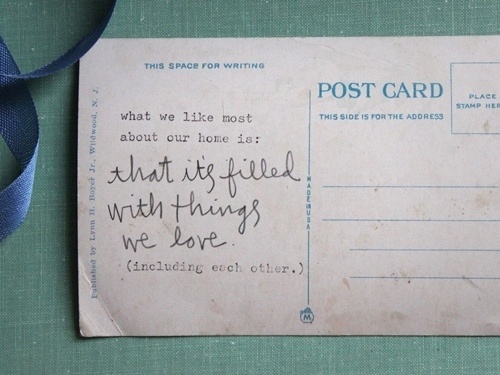 THIS SPACE FOR WRITING
POST CARD
THIS SIDE IS FOR THE ADDRESS
PLACE
STAMP HER
what we like most
about our home is:
that it's filled
with things
we love.
(including each other.)
Published by Lynn H. Boyer Jr., Wildwood, N. J.
MADE IN USA
M